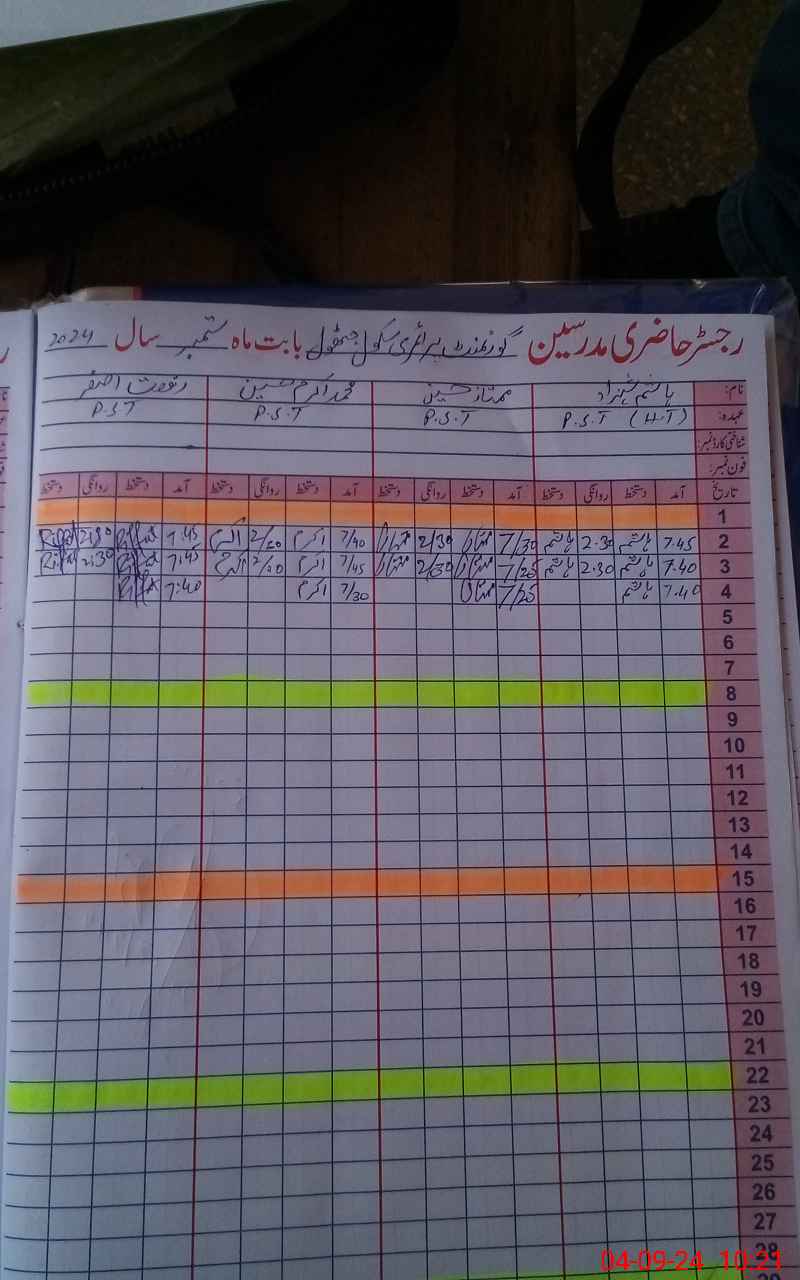 رجسٹر حاضری مدرسین گورنمنٹ پرائمری سکول بابت ماہ ستمبر سال 2024
نام: ہاشم شہزاد ممتاز حسین محمد اکرم حسین رفعت اصغر
عہدہ: P.S.T (H.T) P.S.T P.S.T P.S.T
شناختی کارڈ نمبر:
فون نمبر:
تاریخ آمد دستخط روانگی دستخط آمد دستخط روانگی دستخط آمد دستخط روانگی دستخط آمد دستخط روانگی دستخط
1
2 7.45 ہاشم 2.30 ہاشم 7/30 ممتاز 2/30 ممتاز 7/40 اکرم اکرم 7:45 Riffat 2:30 Riffat
3 7.40 ہاشم 2.30 ہاشم 7/25 ممتاز 2/30 ممتاز 7/45 اکرم اکرم 7:45 Riffat 2:30 Riffat
4 7.40 ہاشم 7/25 ممتاز 7/30 اکرم 7:40 Riffat
5
6
7
8
9
10
11
12
13
14
15
16
17
18
19
20
21
22
23
24
25
26
27
28
04-09-24 10:21